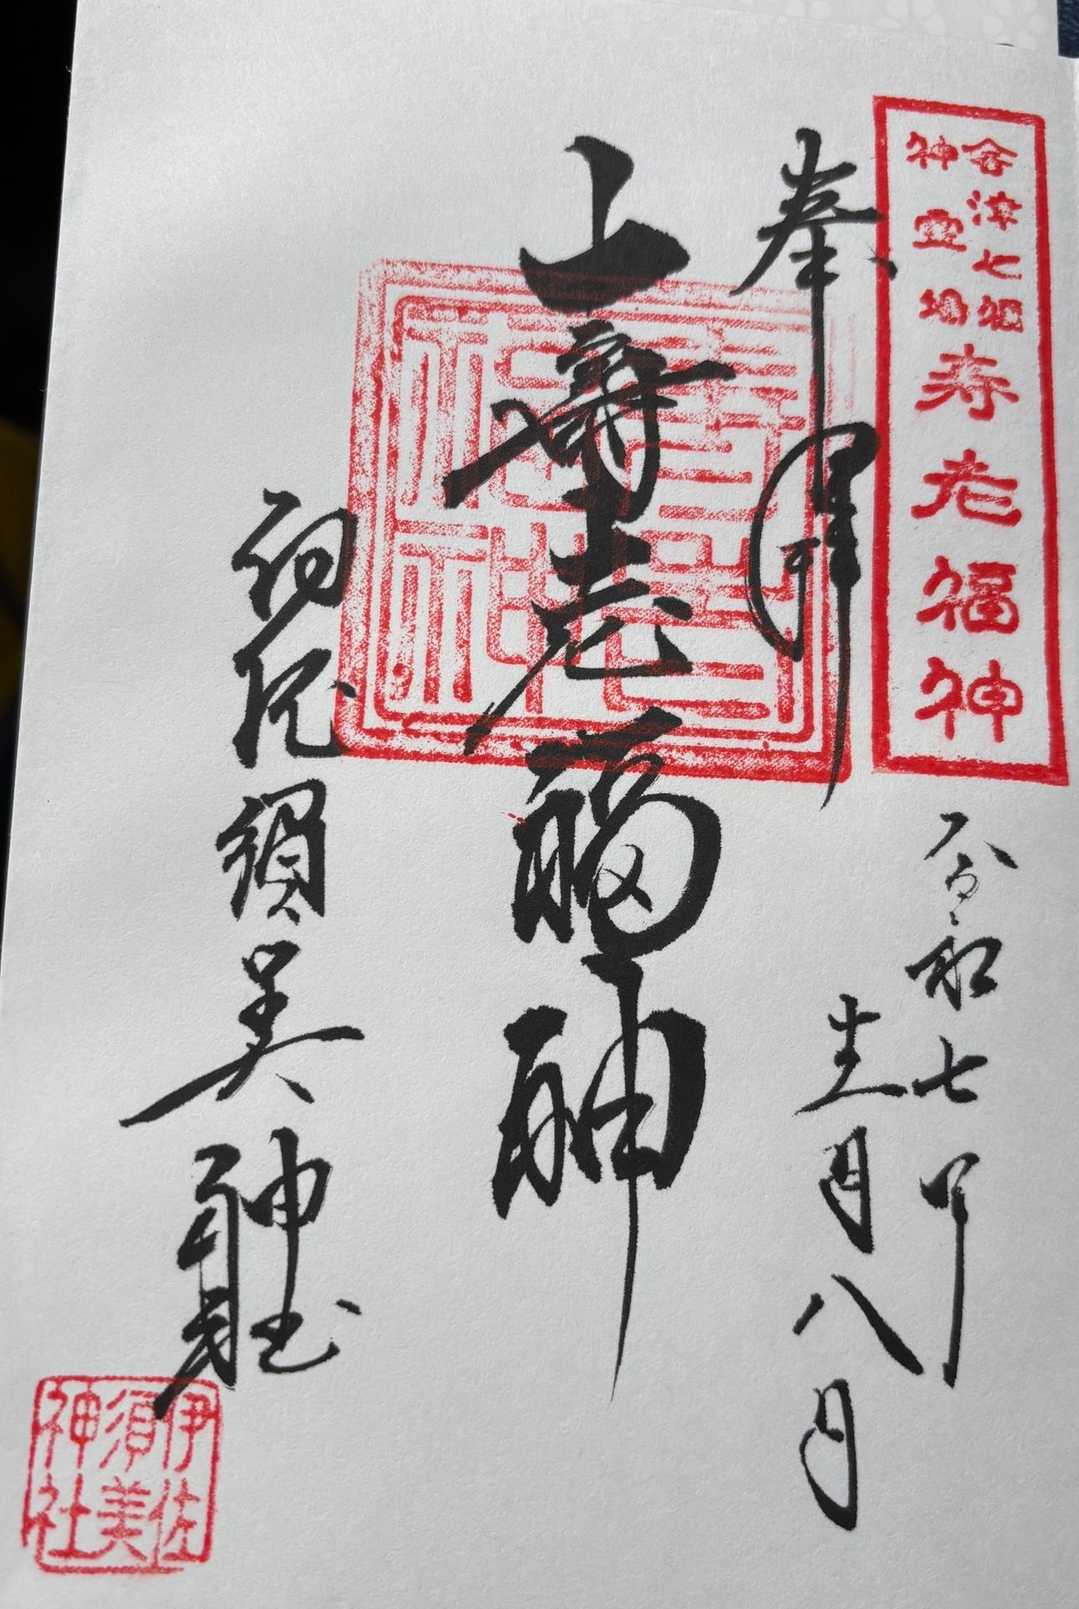 会津七福
神霊場
寿老福神
奉拝
令和七年
十二月八日
壽老福神
伊佐須美神社
伊佐
須美
神社